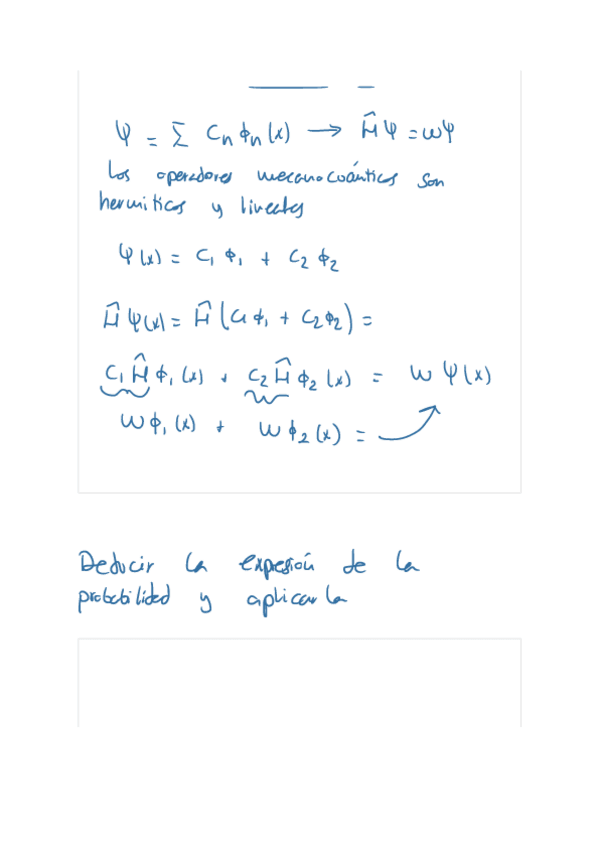 Ψ = Σ Cn ϕn (x) → Ĥ Ψ = ωΨ
Los operadores mecanocuánticos son
hermiticos y lineales
Ψ(x) = C₁ ϕ₁ + C₂ ϕ₂
Ĥ Ψ(x) = Ĥ (C₁ ϕ₁ + C₂ϕ₂) =
C₁ Ĥ ϕ₁ (x) + C₂ Ĥ ϕ₂ (x) = ω Ψ(x)
ω ϕ₁ (x) + ω ϕ₂ (x) =
Deducir la expresión de la
probabilidad y aplicarla